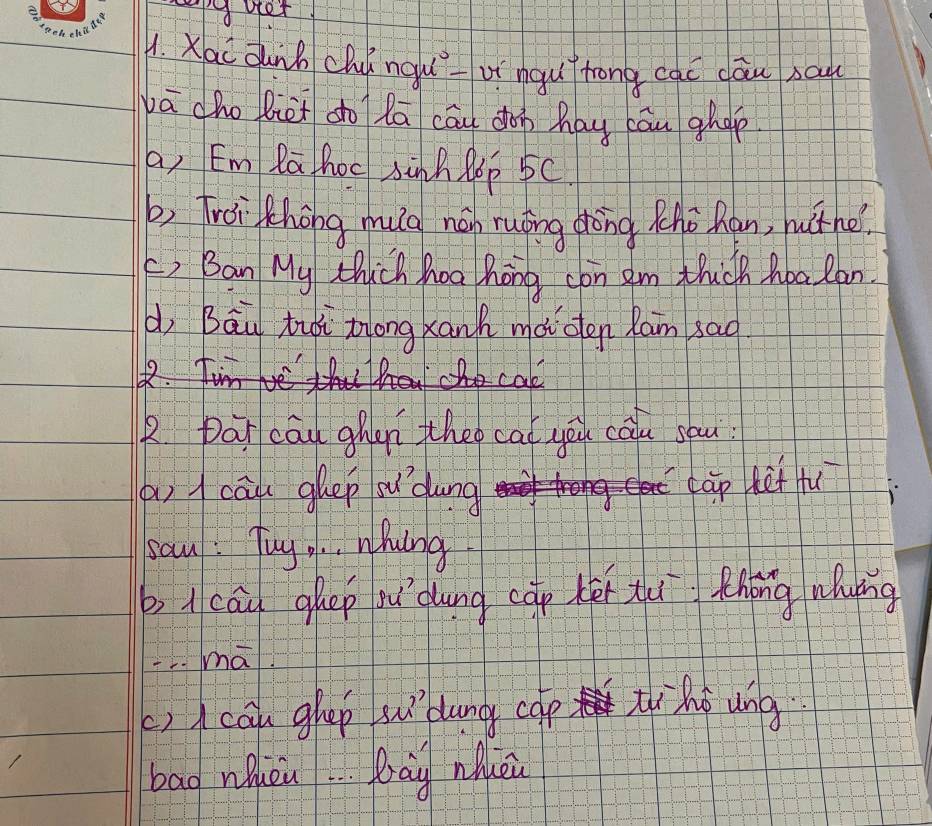 Vở sạch chữ đẹp
Tiếng Việt
1. Xác định chủ ngữ - vị ngữ trong các câu sau
và cho biết đó là câu đơn hay câu ghép.
a) Em là học sinh lớp 5C.
b) Trời không mưa nên ruộng đồng khô hạn, nứt nẻ.
c) Bạn My thích hoa hồng còn em thích hoa lan.
d) Bầu trời trong xanh mới đẹp làm sao
2. Tìm vế thứ hai cho các
2. Đặt câu ghép theo các yêu cầu sau:
a) 1 câu ghép sử dụng một trong các cặp kết từ
sau: Tuy... nhưng
b) 1 câu ghép sử dụng cặp kết từ: không những
... mà.
c) 1 câu ghép sử dụng cặp từ hô ứng:
bao nhiêu ... bấy nhiêu